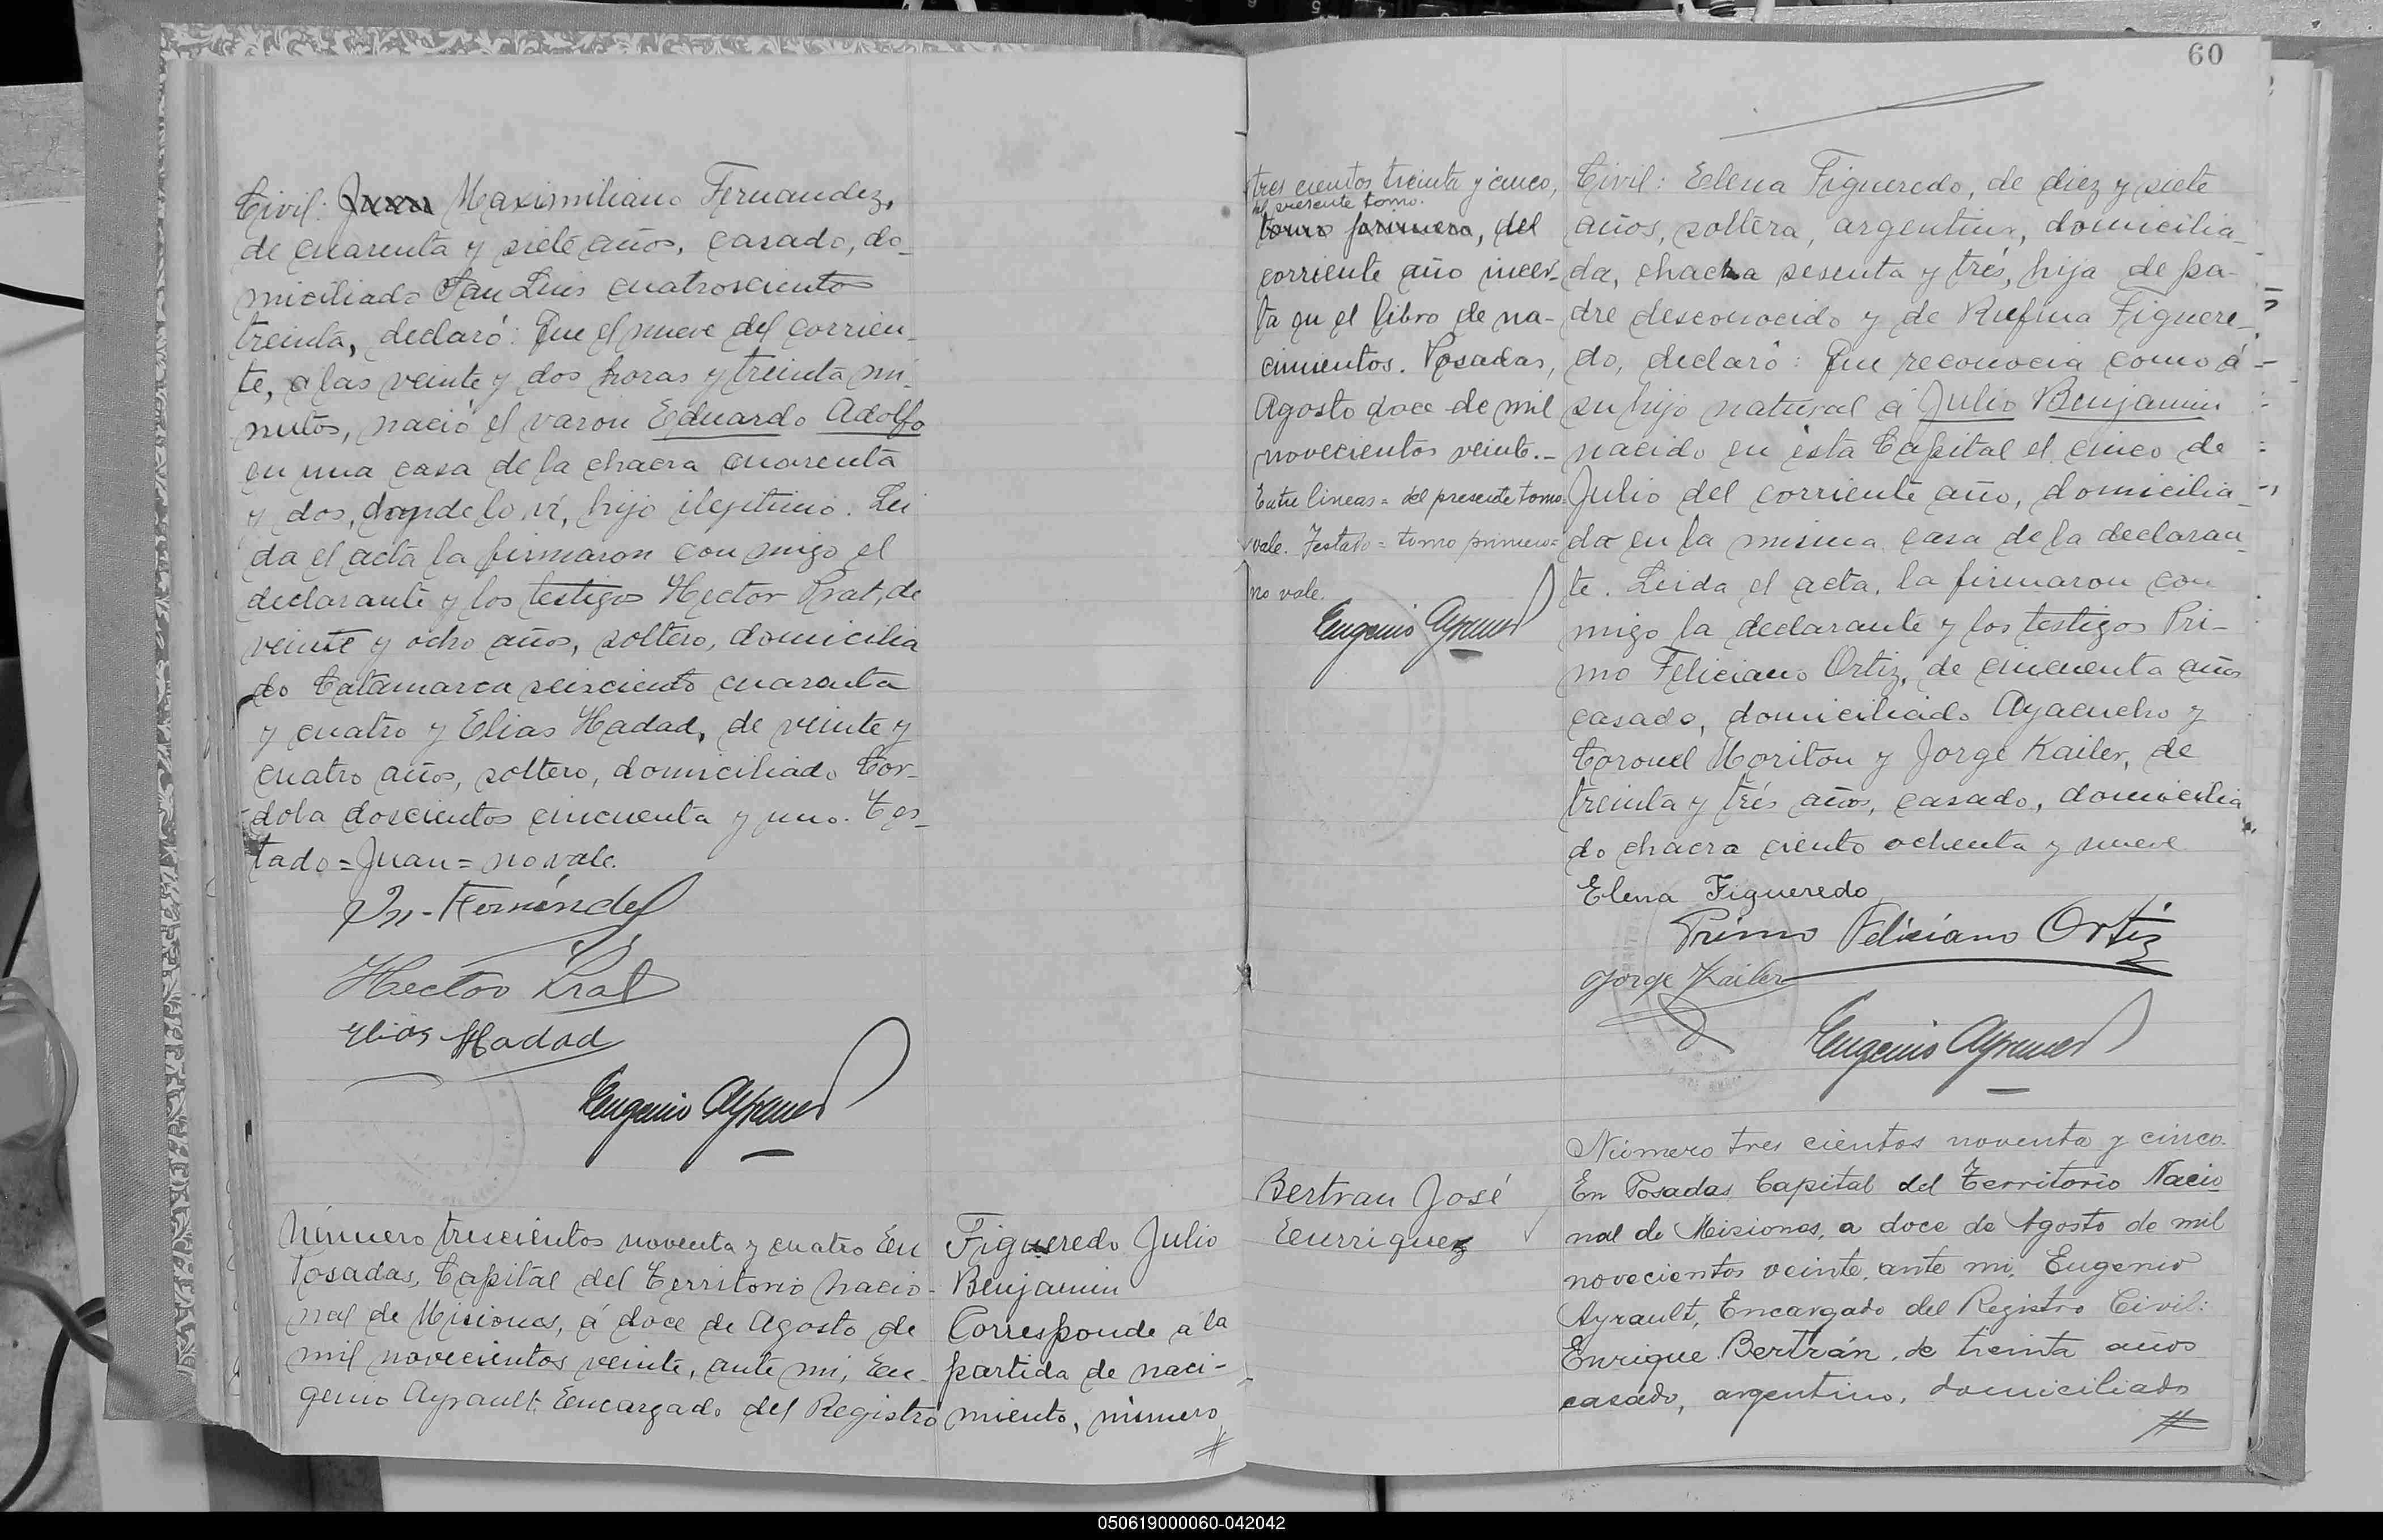 Civil: Juan Maximiliano Fernandez,
de cuarenta y siete años, casado, do-
miciliado San Luis cuatroscientos
treinta, declaró: Que el nueve del corrien-
te, a las veinte y dos horas y treinta mi-
nutos, nació el varon Eduardo Adolfo
en una casa de la chacra cuarenta
y dos, donde lo ví, hijo ilegitimo. Lei-
da el acta la firmaron con migo el
declarante y los testigos Hector Prat, de
veinte y ocho años, soltero, domicilia
do Catamarca seisciento cuarenta
y cuatro y Elias Hadad, de veinte y
cuatro años, soltero, domiciliado Cor-
doba doscientos cincuenta y uno. Tes-
tado = Juan = no vale.
M. Fernández
Hector Prat
Elias Hadad
Eugenio Ayrault
Número trescientos noventa y cuatro En
Posadas, Capital del Territorio nacio-
nal de Misiones, á doce de Agosto de
mil novecientos veinte, ante mi, Eu-
genio Ayrault, Encargado del Registro
Figueredo Julio
Benjamin
Corresponde a la
partida de naci-
miento, número
60
tres cientos treinta y cinco,
del presente tomo.
tomo primero, del
corriente año incer-
ta en el libro de na-
cimientos. Posadas,
Agosto doce de mil
novecientos veinte.-
Entre lineas = del presente tomo =
vale. Testado = tomo primero =
no vale.
Eugenio Ayrault
Civil: Elena Figueredo, de diez y siete
años, soltera, argentina, domicilia-
da, chacra sesenta y trés, hija de pa-
dre desconocido y de Rufina Figuere-
do, declaró: Que reconocia como á
su hijo natural á Julio Benjamin
nacido en ésta Capital el cinco de
Julio del corriente año, domicilia-
do en la misma casa de la declaran-
te. Leida el acta, la firmaron con
migo la declarante y los testigos Pri-
mo Feliciano Ortiz, de cincuenta años
casado, domiciliado Ayacucho y
Coronel Moriton y Jorge Kailer, de
treinta y trés años, casado, domicilia
do chacra ciento ochenta y nueve
Elena Figueredo
Primo Feliciano Ortiz
Jorge Kailer
Eugenio Ayrault
Bertran José
Eenrriquez
Número tres cientos noventa y cinco.
En Posadas Capital del Territorio Nacio
nal de Misiones, a doce de Agosto de mil
novecientos veinte, ante mi, Eugenio
Ayrault, Encargado del Registro Civil:
Enrique Bertrán, de treinta años
casado, argentino, domiciliado
050619000060-042042